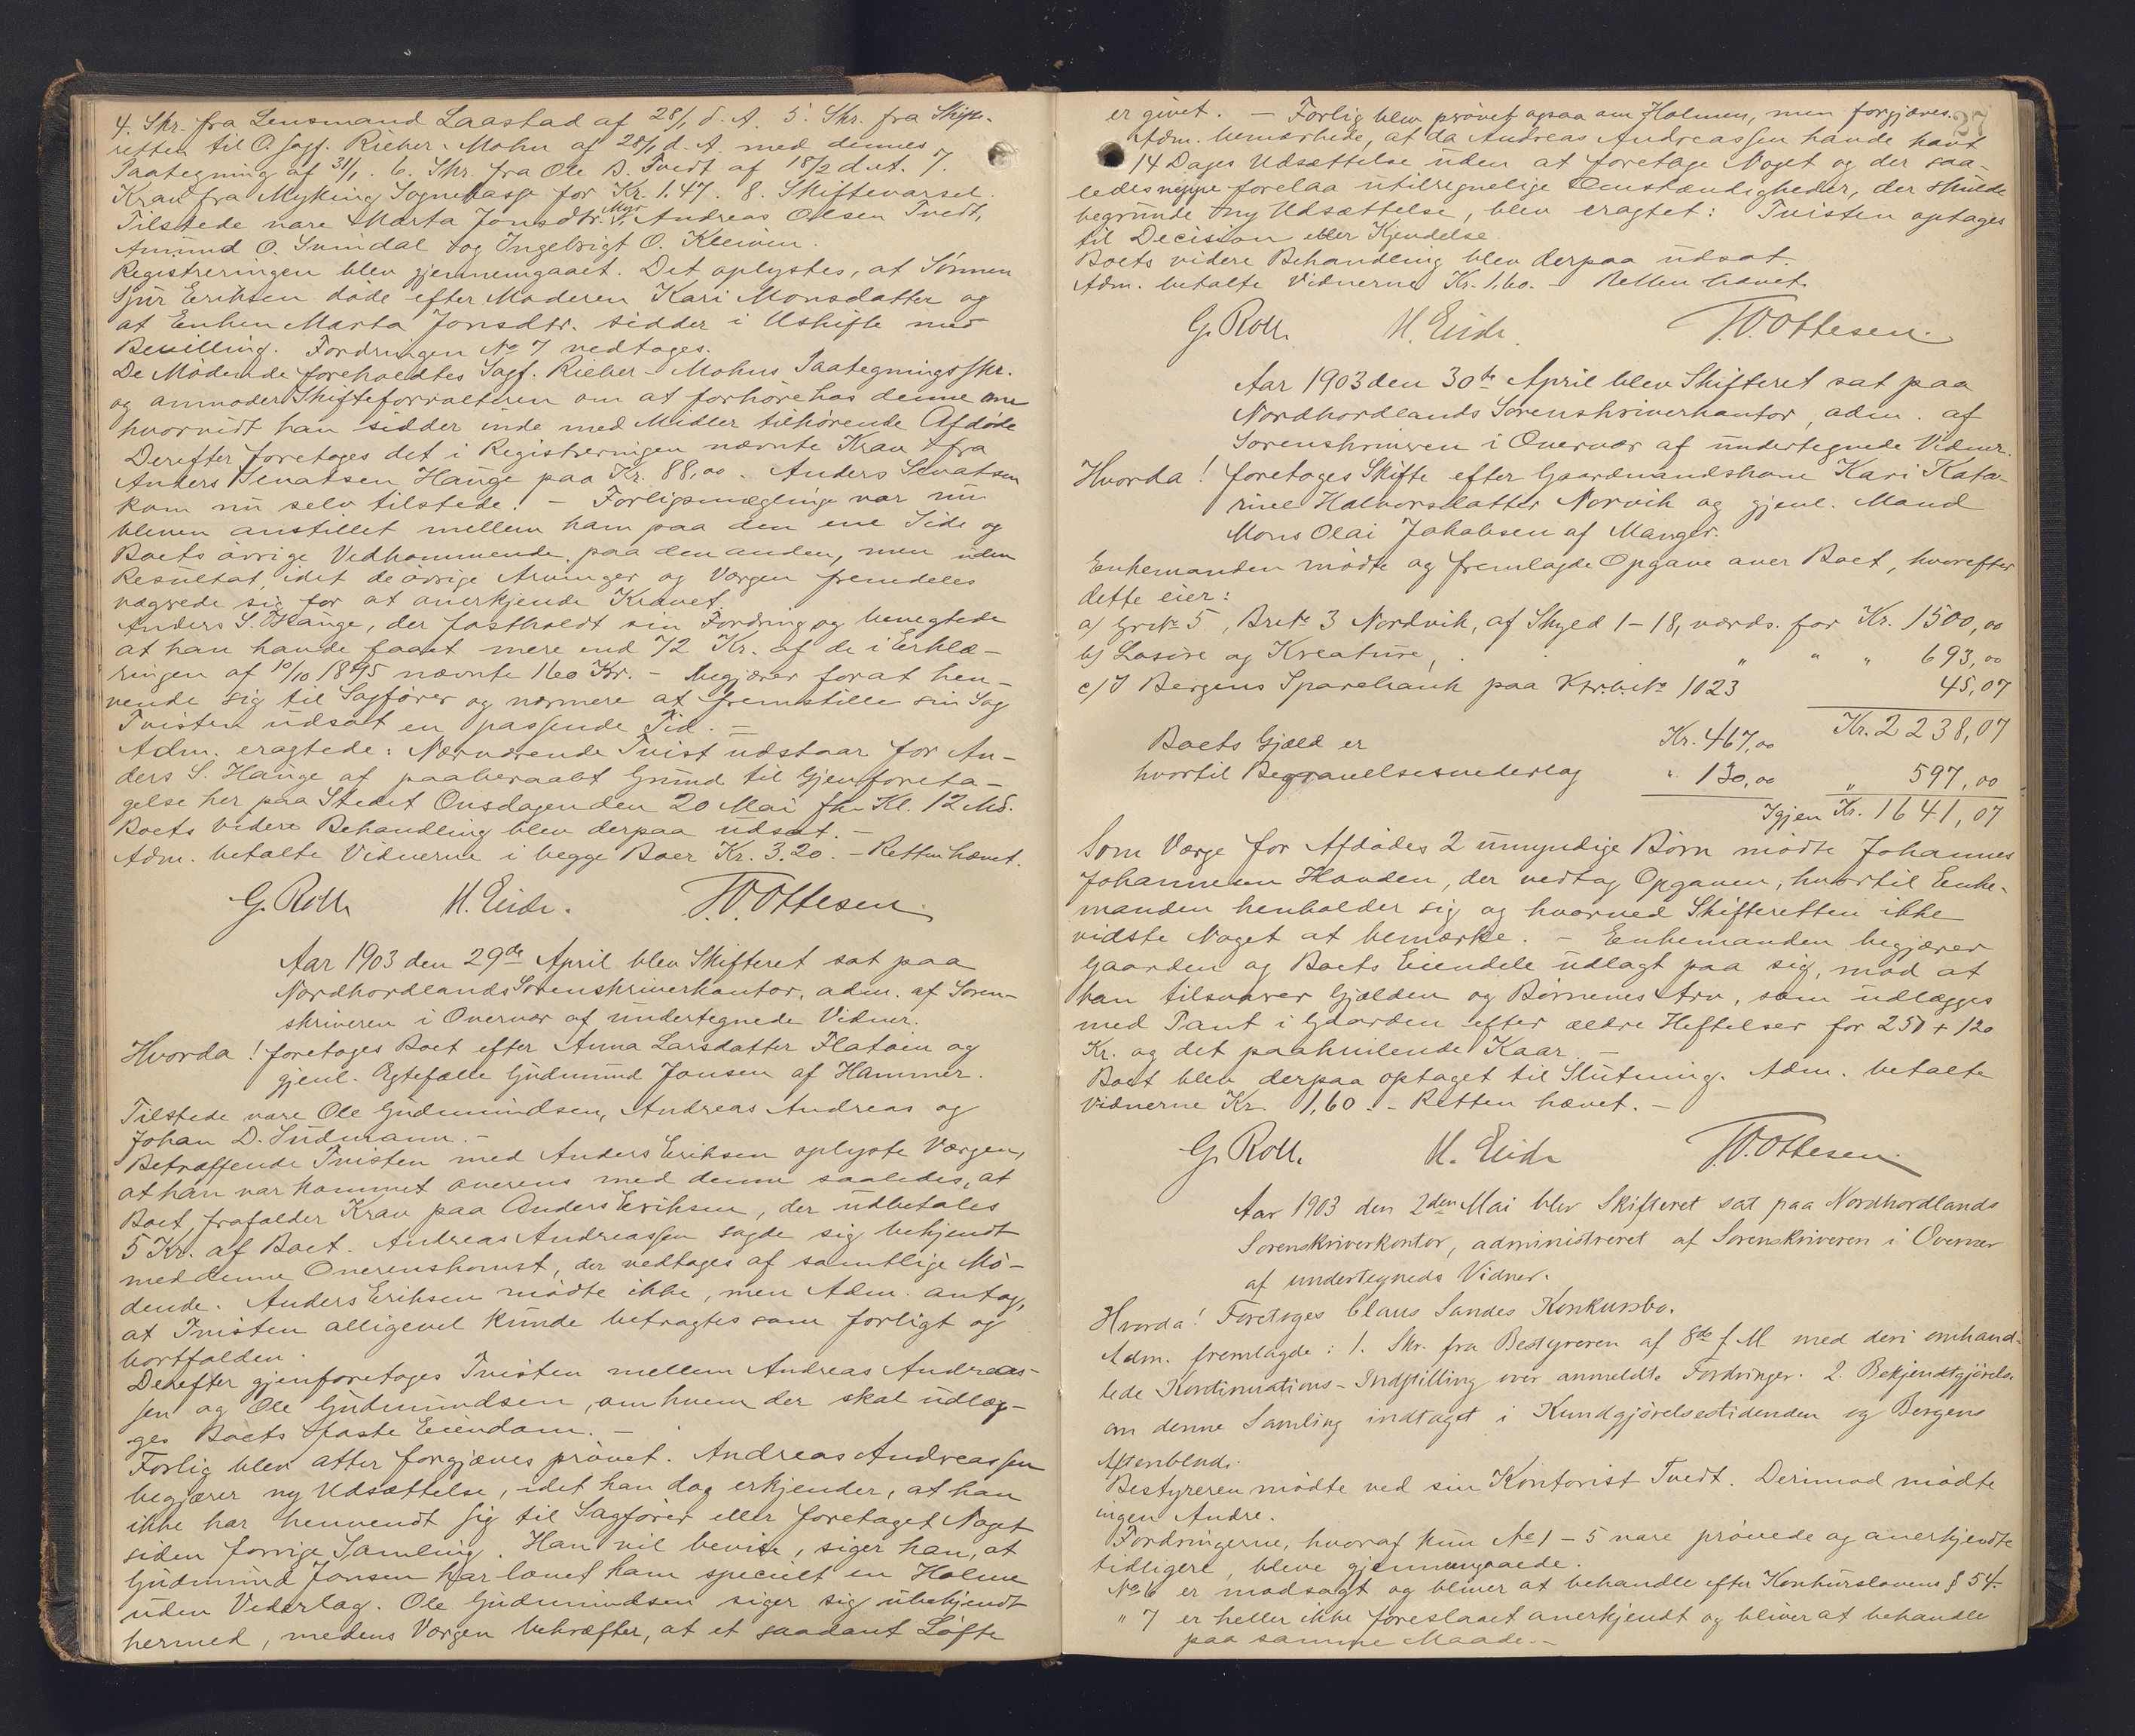 4. Skr. fra Lensmand Laastad af 28/1 d. A. 5. Skr. fra Skifte-
retten til O. Sagf. Rieber-Mohn af 28/1 d. A. med dennes
Paategning af 31/1. 6. Skr. fra Ole B. Tvedt af 18/2 d. A. 7.
Krav fra Myking Sognekasse for Kr. 1.47. 8. Skiftevarsel.
Tilstede vare Marta Jonsdtr. Myr, Andreas Olsen Tvedt,
Amund O. Svindal og Ingebrigt O. Kleiven.
Registreringen blev gjennemgaaet. Det oplystes, at Sønnen
Sjur Eriksen døde efter Moderen Kari Monsdatter og
at Enken Marta Jonsdtr. sidder i Uskifte med
Bevilling. Fordringen No 7 vedtages.
De Mødende foreholdtes Sagf. Rieber-Mohns Paategningsskr.
og anmoder Skifteforvalteren om at forhøre hos denne om
hvorvidt han sidder inde med Midler tilhørende Afdøde
Derefter foretoges det i Registreringen nævnte Krav fra
Anders Senatsen Hauge paa Kr. 88,00. Anders Senatsen
kom nu selv tilstede. - Forligsmægling var nu
bleven anstillet mellem ham paa den ene Side og
Boets øvrige Vedkommende paa den anden, men uden
Resultat, idet de øvrige Arvinger og Vergen fremdeles
vægrede sig for at anerkjende Kravet.
Anders S. Hauge, der fastholdt sin Fordring og benegtede
at han havde faaet mere end 72 Kr. af de i Erklæ-
ringen af 10/10 1895 nævnte 160 Kr. - begjærer for at hen-
vende sig til Sagfører og nærmere at fremstille sin Sag
Tvisten udsat en passende Tid. -
Adm. eragtede: Nærværende Tvist udstaar for An-
ders S. Hauge af paaberaabt Grund til Gjenforeta-
gelse her paa Stedet Onsdagen den 20 Mai fk. Kl. 12 Md.
Boets videre Behandling blev derpaa udsat. -
Adm. betalte Vidnerne i begge Boer Kr. 3.20. - Retten hævet.
G. Roll H. Eide. T.O. Ottesen
Aar 1903 den 29de April blev Skifteret sat paa
Nordhordlands Sorenskriverkontor, adm. af Soren-
skriveren i Overvær af undertegnede Vidner.
Hvorda! foretoges Boet efter Anna Larsdatter Flatøen og
gjenl. Egtefælle Gudmund Jonsen af Hammer.
Tilstede vare Ole Gudmundsen, Andreas Andreas og
Johan D. Sudmann. -
Betræffende Tvisten med Anders Eriksen oplyste Værgen,
at han var kommet overens med denne saaledes, at
Boet frafalder Krav paa Anders Eriksen, der udbetales
5 Kr. af Boet. Andreas Andreassen sagde sig bekjendt
med denne Overenskomst, der vedtages af samtlige Mø-
dende. Anders Eriksen mødte ikke, men Adm. antog,
at Tvisten alligevel kunde betragtes som forligt og
bortfalden.
Derefter gjenforetoges Tvisten mellem Andreas Andreas-
sen og Ole Gudmundsen, om hvem der skal udlæg-
ges Boets faste Eiendom. -
Forlig blev atter forgjæves prøvet. Andreas Andreassen
begjærer ny Udsættelse, idet han dog erkjender, at han
ikke har henvendt sig til Sagfører eller foretaget Noget
siden forrige Samling. Han vil bevise, siger han, at
Gudmund Jonsen har lovet ham specielt en Holme
uden Vederlag. Ole Gudmundsen siger sig ubekjendt
hermed, medens Værgen bekræfter, at et saadant Løfte
27
er givet. - Forlig blev prøvet ogsaa om Holmen, men forgjæves.
Adm. bemærkede, at da Andreas Andreassen havde havt
14 Dages Udsættelse uden at foretage Noget og der saa-
ledes neppe forelaa utilregnelige Omstændigheder, der skulde
begrunde ny Udsættelse, blev eragtet: Tvisten optages
til Decision eller Kjendelse.
Boets videre Behandling blev derpaa udsat.
Adm. betalte Vidnerne Kr. 1.60. - Retten hævet.
G. Roll. H. Eide. T.O. Ottesen.
Aar 1903 den 30te April blev Skifteret sat paa
Nordhordlands Sorenskriverkontor, adm. af
Sorenskriveren i Overvær af undertegnede Vidner.
Hvorda! foretoges Skifte efter Gaardmandskone Kari Kata-
rine Halvorsdatter Norvik og gjenl. Mand
Mons Olai Jakobsen af Manger.
Enkemanden mødte og fremlagde Opgave over Boet, hvorefter
dette eier:
a) GrNo 5, BrNo 3 Nordvik, af Skyld 1-18, værds. for Kr. 1500,00
b) Løsøre og Kreature, " " " 693,00
c) I Bergens Sparebank paa KtrbNo 1023 45,07
Kr. 2238,07
Boets Gjæld er Kr. 467,00
hvortil Begravelsesvederlag " 130,00 " 597,00
Igjen Kr. 1641,07
Som Værge for Afdødes 2 umyndige Børn mødte Johannes
Johannesen Havden, der vedtog Opgaven, hvortil Enke-
manden henholder sig og hvorved Skifteretten ikke
vidste Noget at bemærke. - Enkemanden begjærer
Gaarden og Boets Eiendele udlagt paa sig, mod at
han tilsvarer Gjælden og Børnenes Arv, som udlægges
med Pant i Gaarden efter ældre Heftelser for 250 + 120
Kr. og det paahvilende Kaar. -
Boet blev derpaa optaget til Slutning. Adm. betalte
Vidnerne Kr. 1,60. - Retten hævet. -
G. Roll. H. Eide T.O. Ottesen.
Aar 1903 den 2den Mai blev Skifteret sat paa Nordhordlands
Sorenskriverkontor, administreret af Sorenskriveren i Overvær
af undertegnede Vidner.
Hvorda! Foretoges Claus Sandes Konkursbo.
Adm. fremlagde: 1. Skr. fra Bestyreren af 8de f. M. med deri omhand-
lede Kontinuations-Indstilling over anmeldte Fordringer. 2. Bekjendtgjørelse
om denne Samling indtaget i Kundgjørelsestidenden og Bergens
Aftenblad.
Bestyreren mødte ved sin Kontorist Tvedt. Derimod mødte
ingen Andre.
Fordringerne, hvoraf kun No 1-5 vare prøvede og anerkjendte
tidligere, bleve gjennemgaaede.
No 6 er modsagt og bliver at behandle efter Konkurslovens § 54.
" 7 er heller ikke foreslaaet anerkjendt og bliver at behandle
paa samme Maade. -